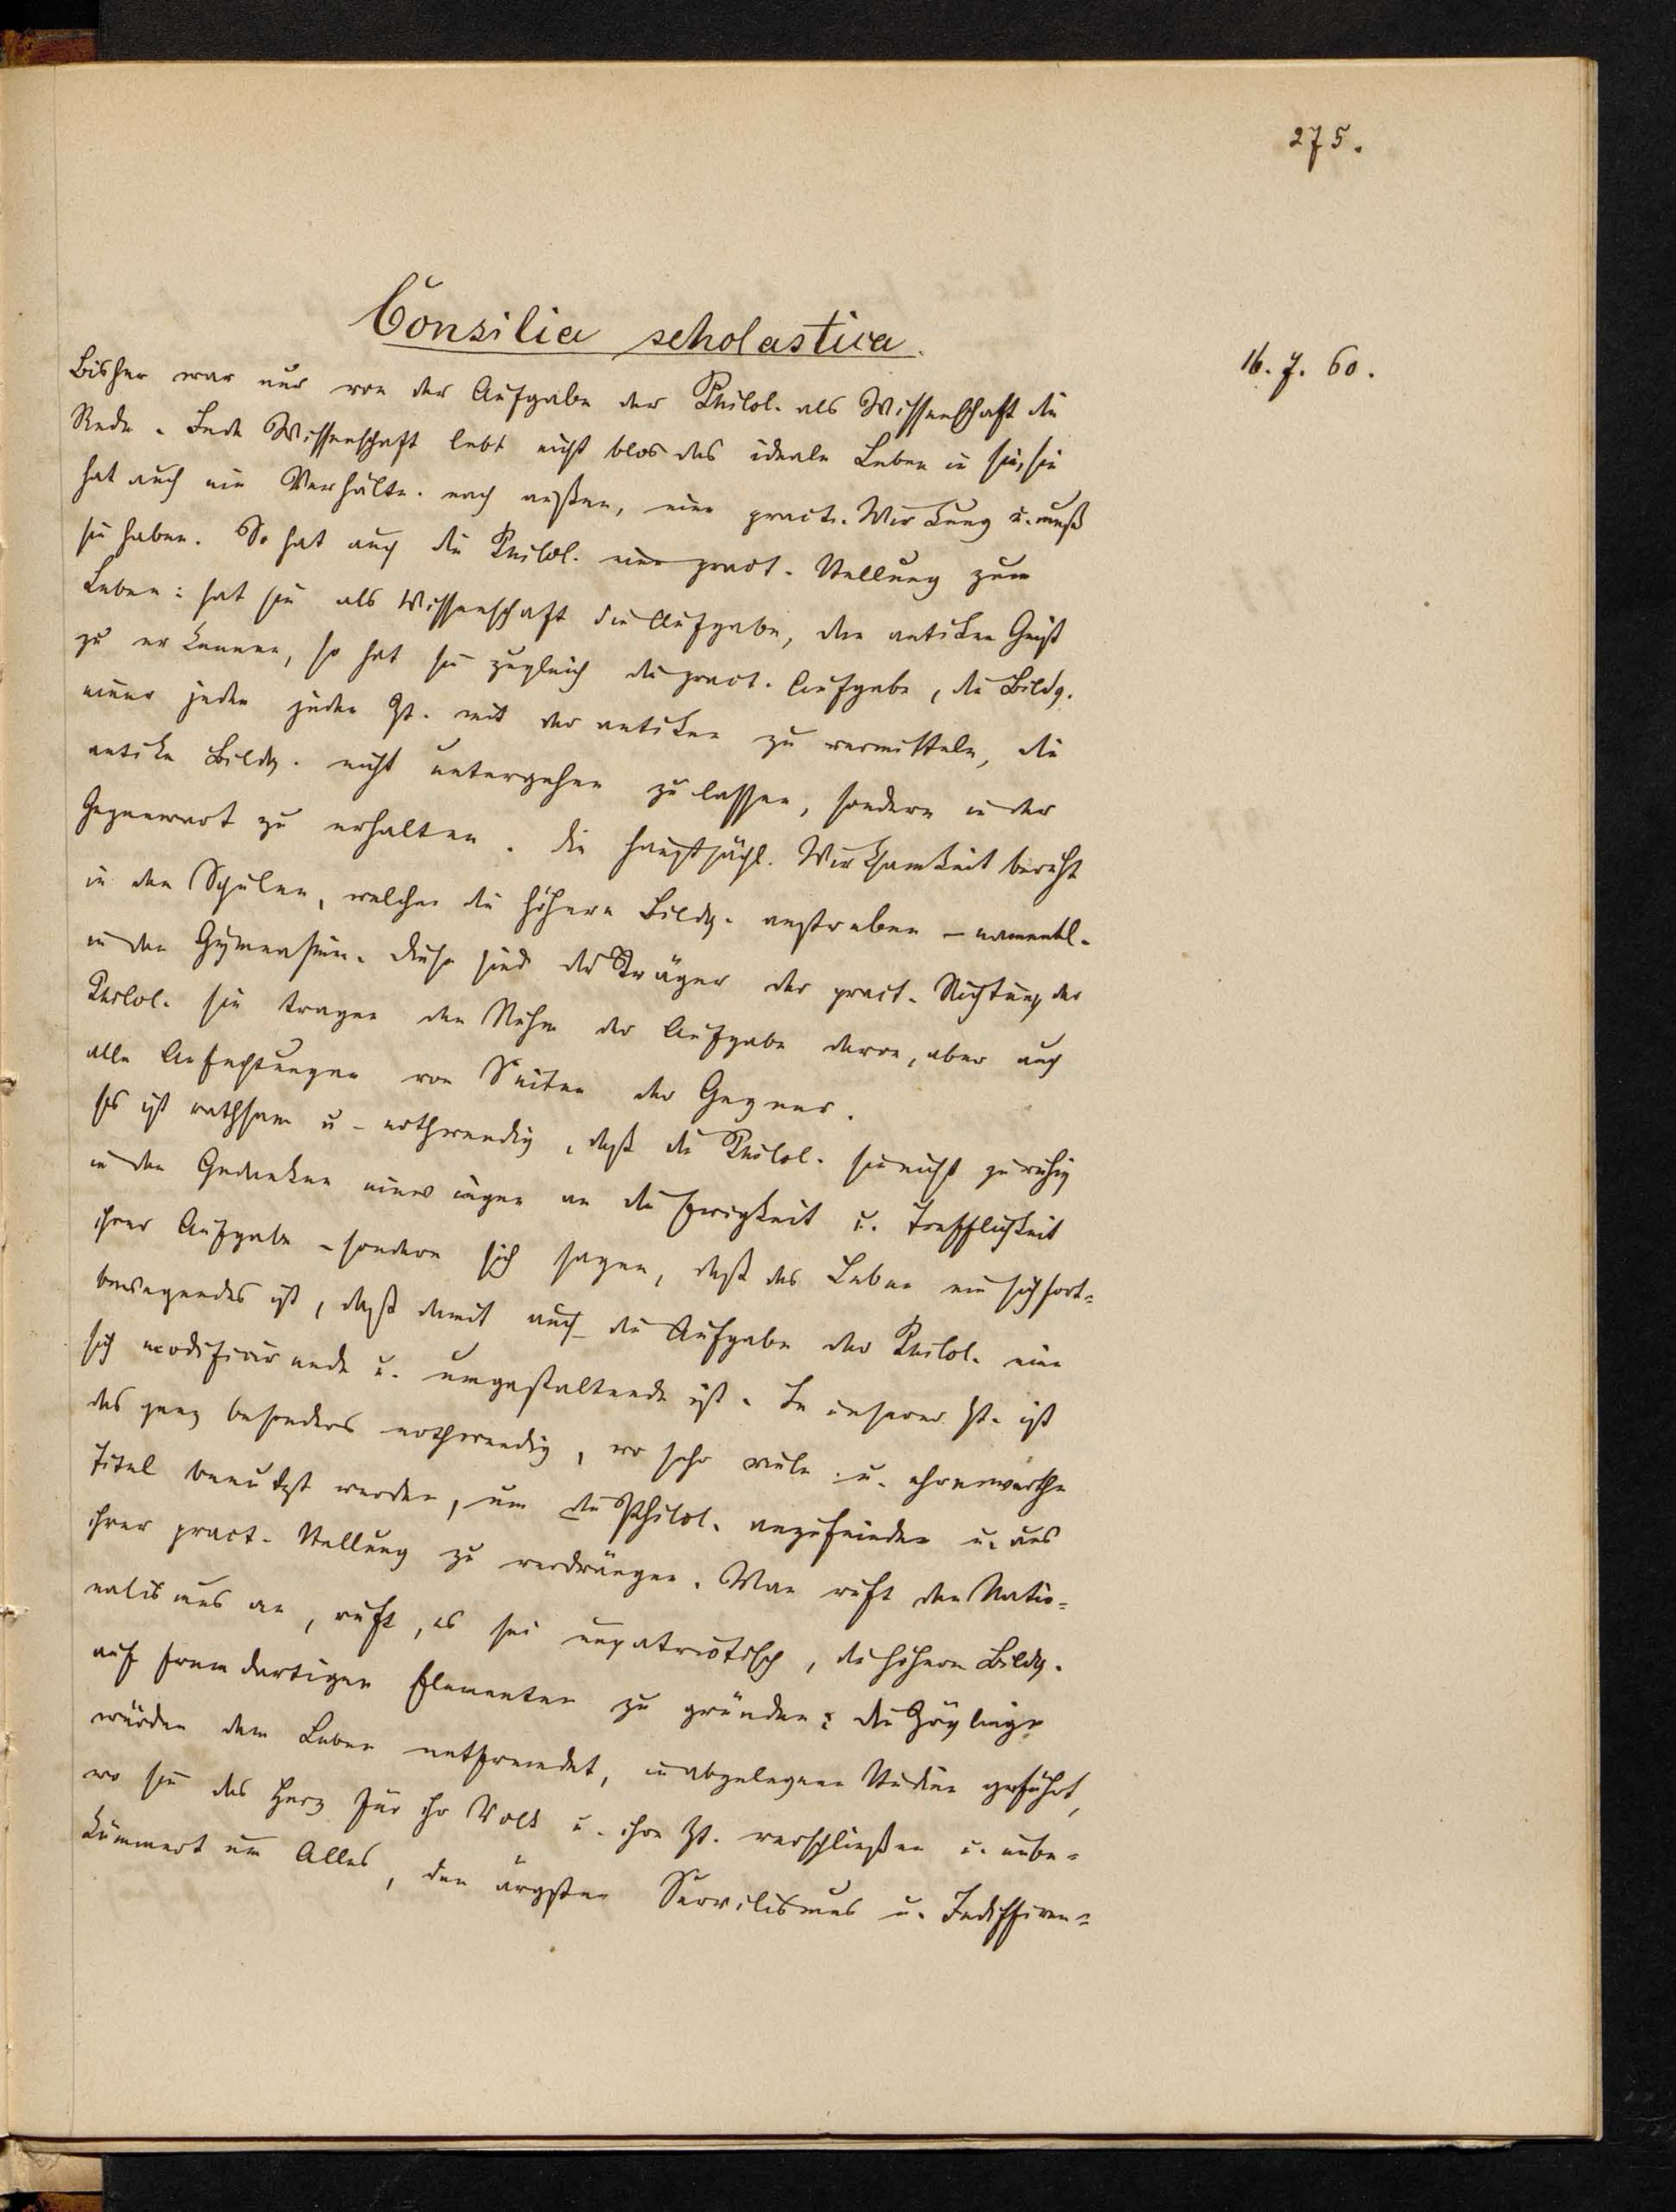 275.
Consilia scholastica.
16. 7. 60.
Bisher war nur von der Aufgabe der Philol. als Wissenschaft die
Rede. Jede Wissenschaft lebt nicht blos das ideale Leben in sich, sie
hat auch ein Verhältn. nach außen, eine pract. Wirkung u. muß
sie haben. So hat auch die Philol. eine pract. Stellung zum
Leben: hat sie als Wissenschaft die Aufgabe, den antiken Geist
zu erkennen, so hat sie zugleich die pract. Aufgabe, die Bildg.
einer jeden jeden Zt. mit der antiken zu vermitteln, die
antike Bildg. nicht untergehen zu lassen, sondern in der
Gegenwart zu erhalten. Die hauptsächl. Wirksamkeit beruht
in den Schulen, welche die höhere Bildg. anstreben – namentl.
in den Gymnasien. Diese sind die Träger der pract. Richtung der
Philol. Sie tragen den Ruhm der Aufgabe davon, aber auch
alle Anfechtungen von Seiten der Gegner.
Es ist rathsam u. nothwendig, daß die Philol. sie nicht zu ruhig
in den Gedanken einwiegen an die Ewigkeit u. Trefflichkeit
ihrer Aufgabe – sondern sich sagen, daß das Leben ein sich fort-
bewegendes ist, daß damit auch die Aufgabe der Philol. eine
sich modificirende u. umgestaltende ist. In unserer Zt. ist
das ganz besonders nothwendig, wo sehr viele u. ehrenwerthe
Titel benutzt werden, um die Philol. anzufeinden u. aus
ihrer pract. Stellung zu verdrängen. Man ruft den Natio-
nalismus an, ruft, es sei unpatriotisch, die höhere Bildg.
auf fremdartigen Elementen zu gründen; die Zöglinge
würden dem Leben entfremdet, in abgelegene Studien geführt,
wo sie das Herz für ihr Volk u. ihre Zt. verschließen u. unbe-
kümmert um Alles, den ärgsten Servilismus u. Indifferen-